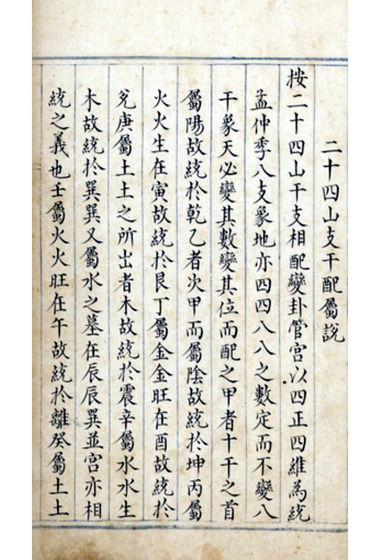 二十四山支干配屬說
按二十四山干支相配變卦管宮以四正四維為統
孟仲季八支象地亦四四八八之數定而不變八
干象天必變其數變其位而配之甲者十干之首
屬陽故統於乾乙者次甲而屬陰故統於坤丙屬
火火生在寅故統於艮丁屬金金旺在酉故統於
兌庚屬土土之所出者木故統於震辛屬水水生
木故統於巽巽又屬水之墓在辰辰巽並宮亦相
統之義也壬屬火火旺在午故統於離癸屬土土